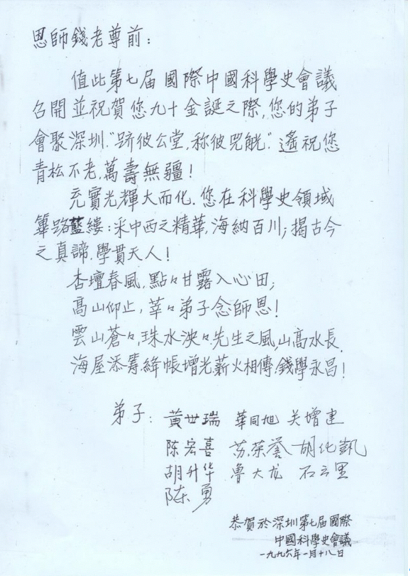 恩師錢老尊前：
值此第七届國際中國科學史會議
召開並祝賀您九十金誕之際，您的弟子
會聚深圳，"跻彼公堂，称彼兕觥"。遙祝您
青松不老，萬壽無疆！
充實光輝大而化，您在科學史領域
篳路藍缕：采中西之精華，海納百川；揭古今
之真諦，學貫天人！
杏壇春風，點々甘露入心田；
高山仰止，莘々弟子念師恩！
雲山蒼々，珠水泱々，先生之風，山高水長．
海屋添籌，絳帳增光，薪火相傳，錢學永昌！
弟子：黃世瑞 華同旭 关增建
陈宏喜 苏荣誉 胡化凯
胡升华 鲁大龙 石云里
陈勇
恭賀於深圳第七届國際
中國科學史會議
一九九六年一月十八日